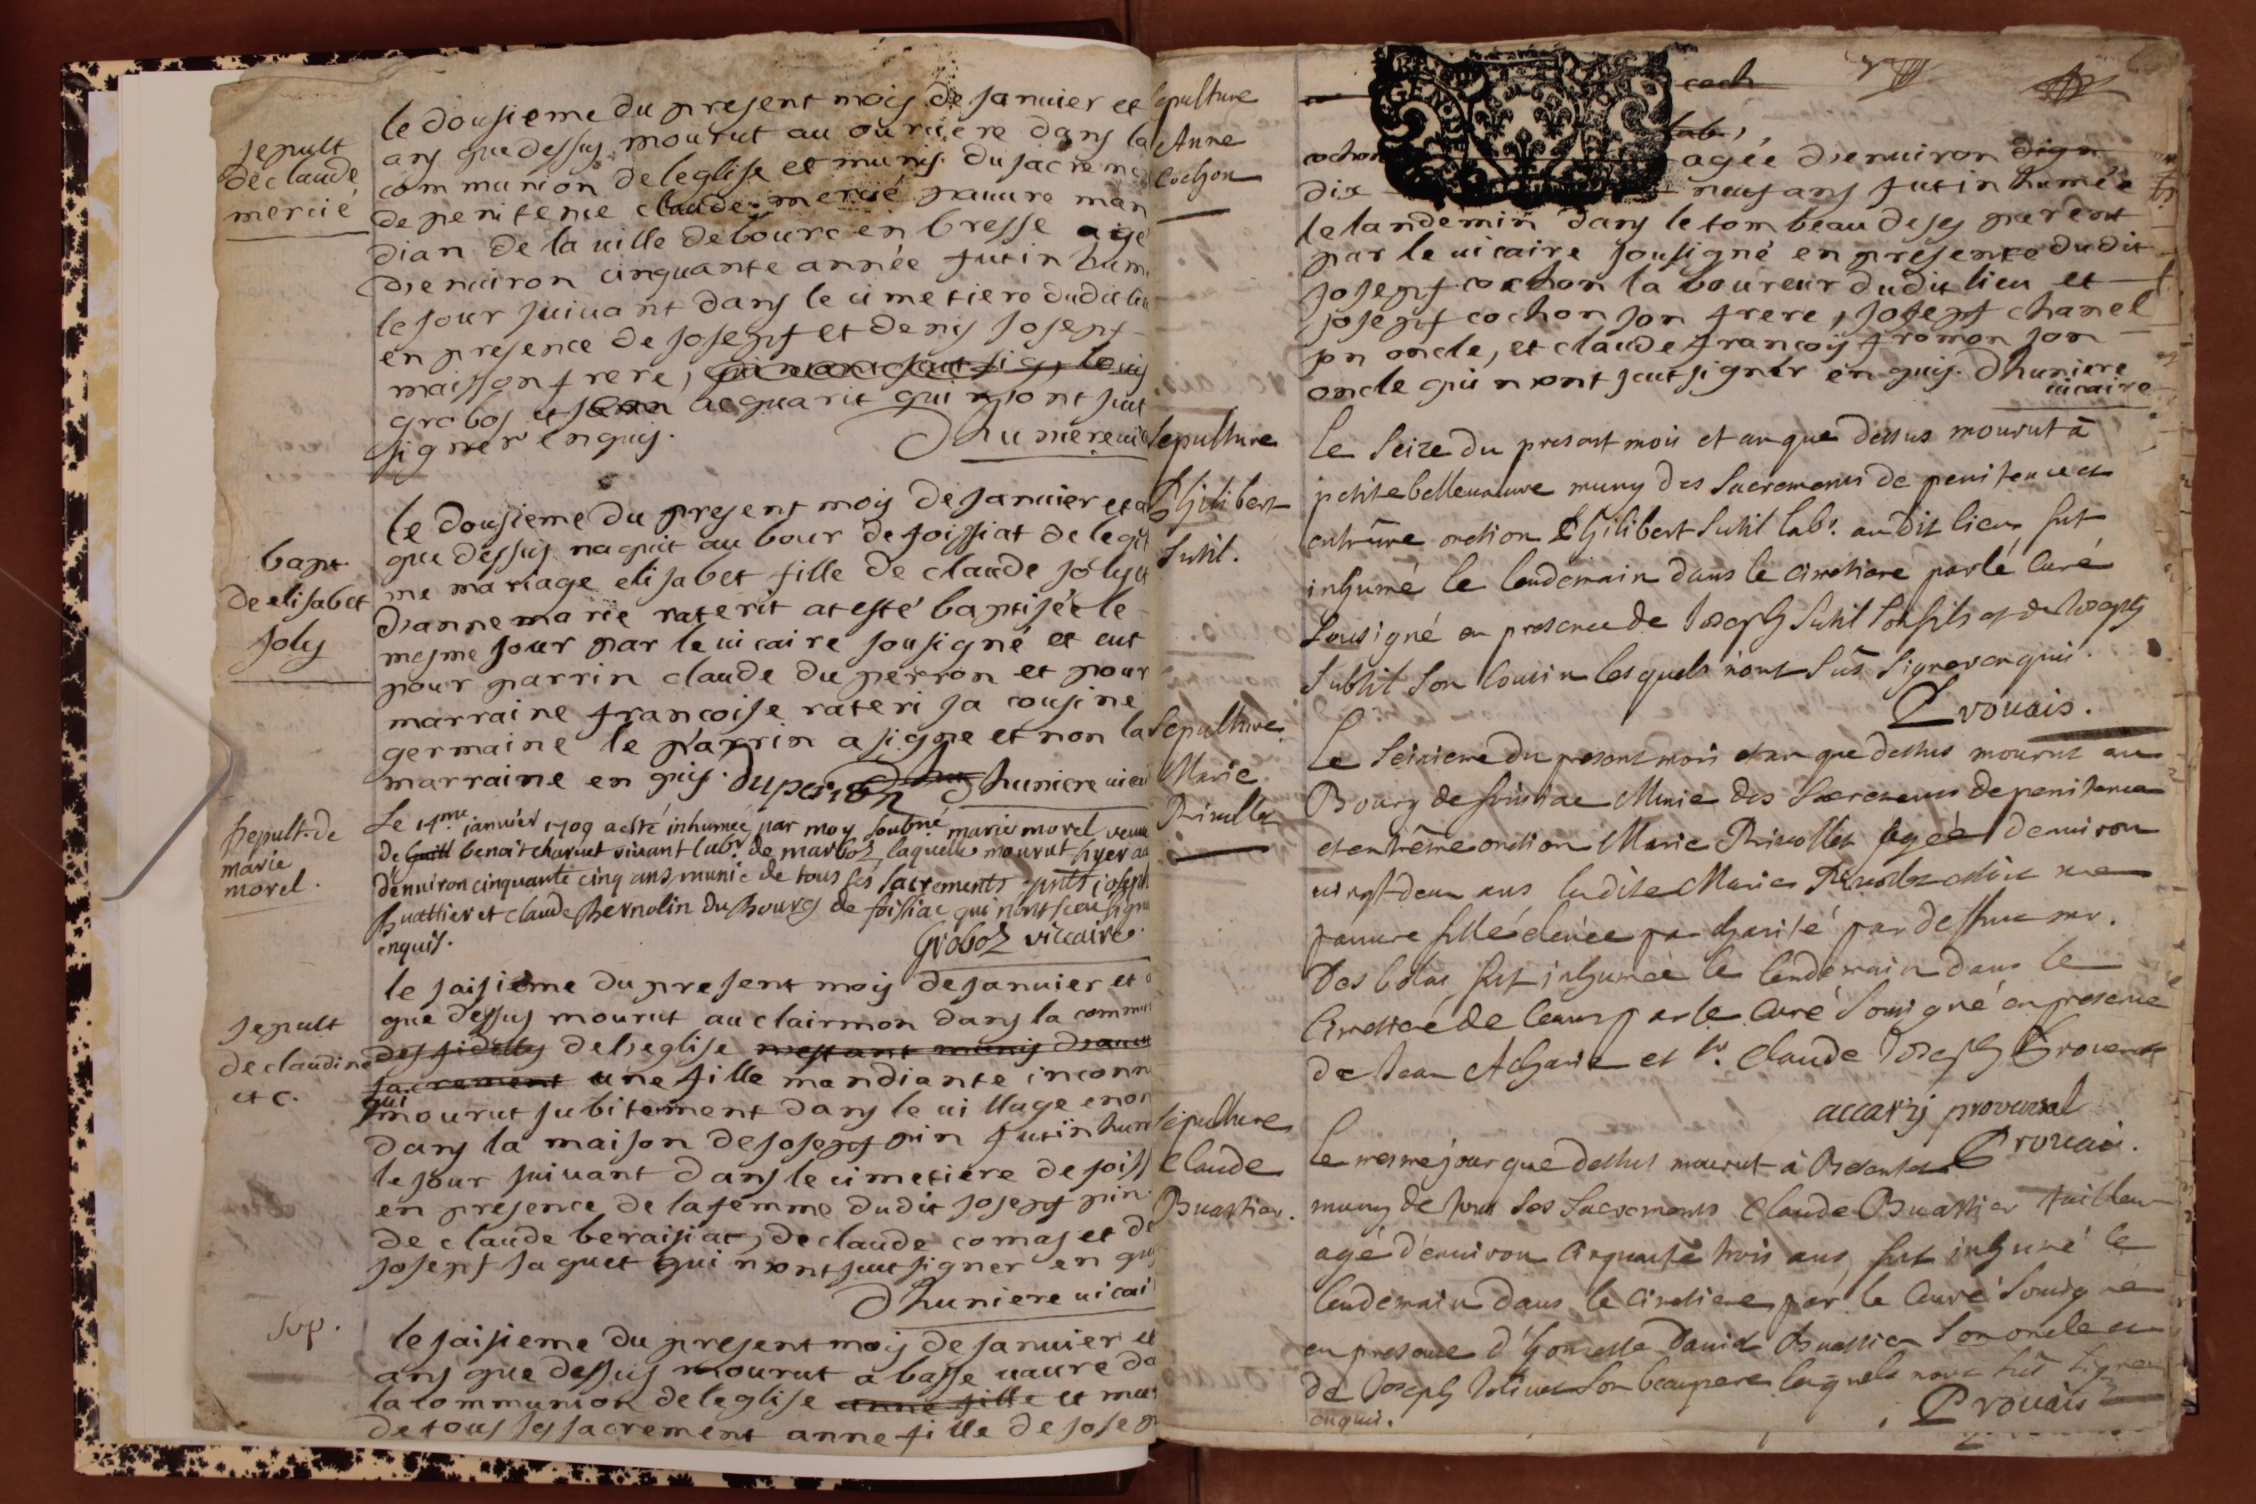 sepult
de claude
mercié
le dousieme du present mois de januier et
ans que dessus mourut au dans la
communion de leglise et munis du sacreme
de penitence claude mercié pauure man
dian de la uille de bourc en bresse agé
denuiron cinquante année fut in hum
le jour suiuant dans le cimetiere dudit lieu
en presence de josepf et denis josepf
maisson frere, louis
grobos et acquarit qui nont sut
signer enquis. Dhumiere uic
bapt
de elisabet
joly
le dousieme du present mois de januier et a
que dessus naquit au bour de foissiat de legit
me mariage elisabet fille de claude joly et
danne marie raterit at esté baptisée le
mesme jour par le uicaire sousigné et eut
pour parrin claude du perron et pour
marraine francoise rateri sa cousine
germaine le parrin a signe et non la
marraine en quis. duperron Dhumiere uicai
sepult. de
marie
morel.
Le 14me januier 1709 a esté inhumée par moy soubné marie morel veuue
de benoit charuet viuant labr de marboz, laquelle mourut hyer
denuiron cinquante cinq ans munie de tous ses sacrements pnts joseph
buattier et claude hernolin du bourg de foissiac qui nont sceu signe
enquis. Groboz viccaire.
sepult
de claudine
et c.
le saisieme du present mois de januier et
que dessus mourut au clairmon dans la commu
des fidelles de leglise nestant munis daucu
sacrement une fille mandiante inconn
qui mourut subitement dans le uillage
dans la maison de josepf pin fut in hum
le jour suiuant dans le cimetiere de foiss
en presence de la femme dudit josepf pin
de claude beraisiat, de claude comas et de
josepf jaquet qui nont sut signer en quis
Dhumiere uicai
sep.
le saisieme du present mois de januier et
ans que dessus mourut a basse uaure da
la communion de leglise anne fille et mu
de tous ses sacrement anne fille de josep
sepulture
Anne
Cochon
GEN
coch
lab,
cochon agée denuiron
dix neuf ans fut in humée
le landemin dans le tombeau de ses parent
par le uicaire sousigné en présence dudit
josepf cochon laboureur dudit lieu et
josepf cochon son frere, josepf chanel
son oncle, et claude francois fromon son
oncle qui nont sut signer enquis. Dhumiere
uicaire
sepulture
Philibert
Subtil.
Le seize du present mois et an que dessus mourut à
petite belleuaure muny des sacrements de penitence et
extrême onction Philibert Subtil labr. audit lieu, fut
inhumé le lendemain dans le cimetiere par le Curé
sousigné en presence de Joseph Subtil son fils et de Joseph
Subtil son cousin lesquels n'ont sus signer enquis.
Prouais.
Sepulture
Marie
Riuollet
Le seizieme du present mois et an que dessus mourut au
Bourg de foissiac Munie des sacrements de penitence
et extrême onction Marie Riuollet agée denuiron
uingt deux ans ladite Marie Riuollet
pauure fille éleuée par charité par deffunt mr.
Des fut inhumée le lendemain dans le
Cimetiere de ceans par le Curé sousigné en presence
de Jean Acharie et Sr. Claude Joseph Prouenal
accarry prouenal
Prouais.
Sepulture
Claude
Buattier.
Le mesme jour que dessus mourut à
muny de tous ses sacrements Claude Buattier tailleur
agé d'enuiron cinquante trois ans, fut inhumé le
lendemain dans le cimetiere par le Curé sousigné
en presence d'honneste Dauid Buattier son oncle et
de Joseph son beaupere lesquels n'ont sus signer
enquis. Prouais